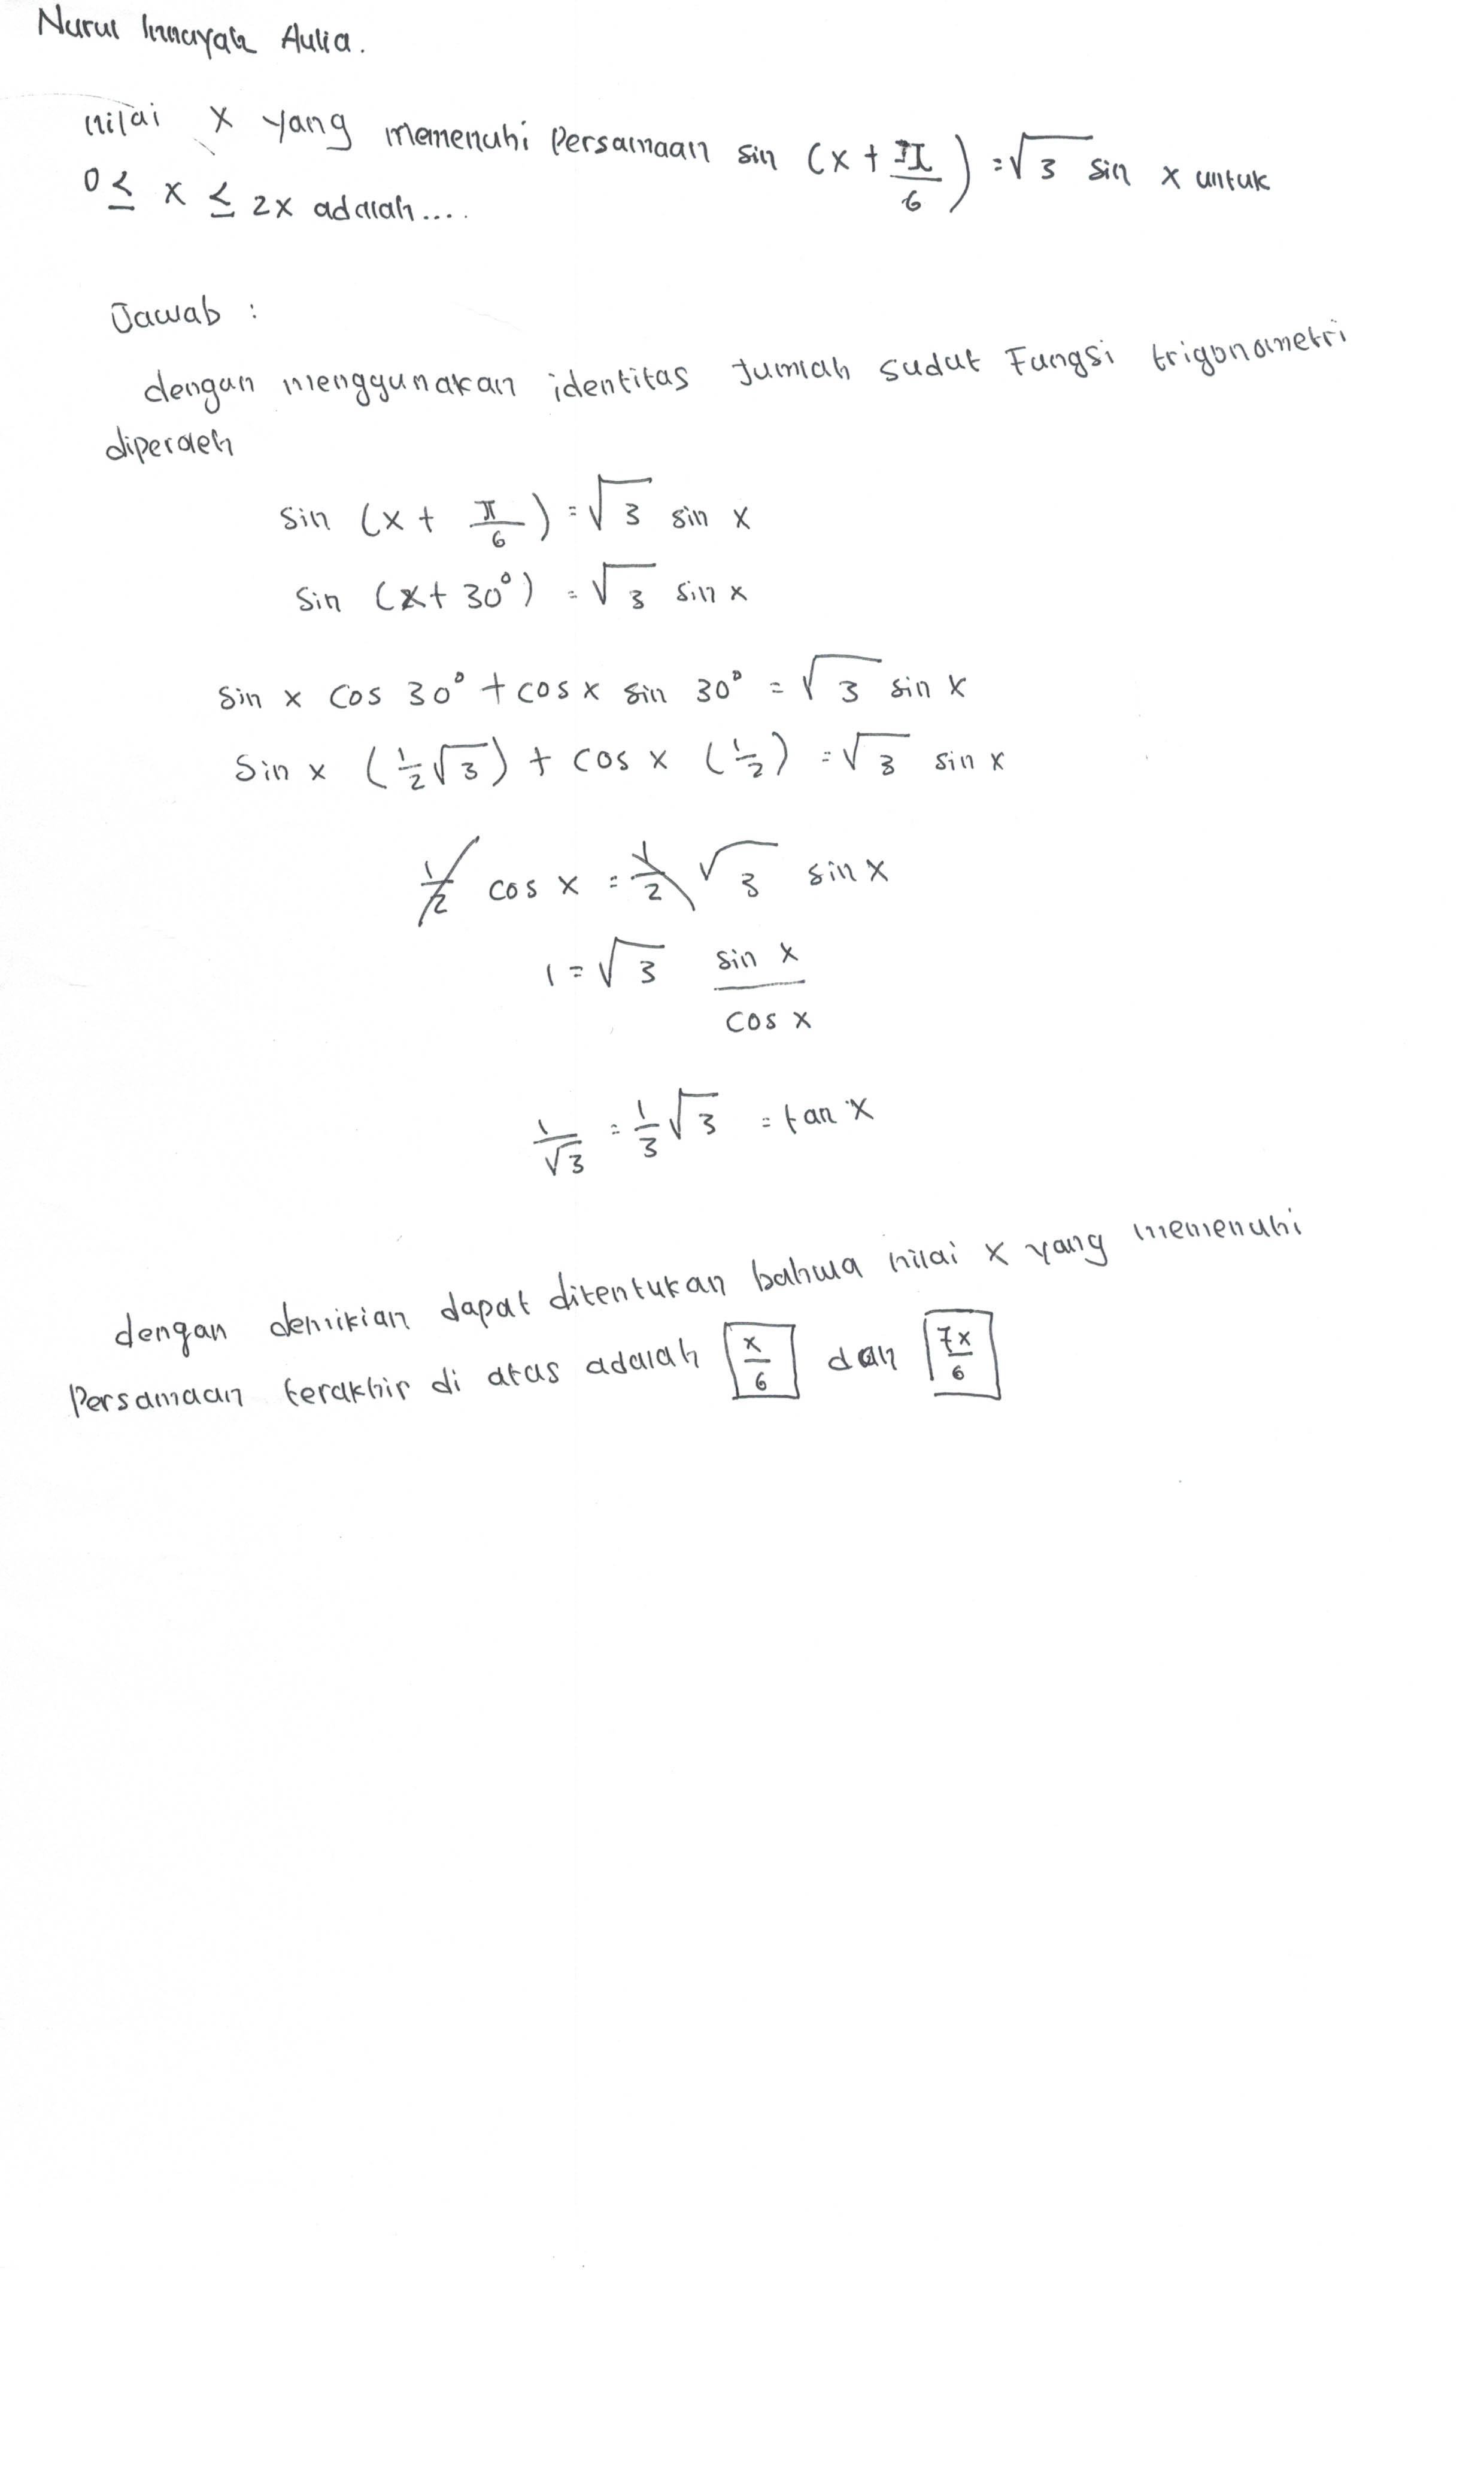 Nurul Innayah Aulia.
nilai x yang memenuhi Persamaan sin (x + π/6) = √3 sin x untuk
0 ≤ x ≤ 2x adalah....
Jawab :
dengan menggunakan identitas Jumlah sudut Fungsi trigonometri
diperoleh
sin (x + π/6) = √3 sin x
sin (x + 30°) = √3 sin x
sin x cos 30° + cos x sin 30° = √3 sin x
sin x (1/2 √3) + cos x (1/2) = √3 sin x
1/2 cos x = 1/2 √3 sin x
1 = √3 sin x / cos x
1/√3 = 1/3 √3 = tan x
dengan demikian dapat ditentukan bahwa nilai x yang memenuhi
Persamaan terakhir di atas adalah x/6 dan 7x/6